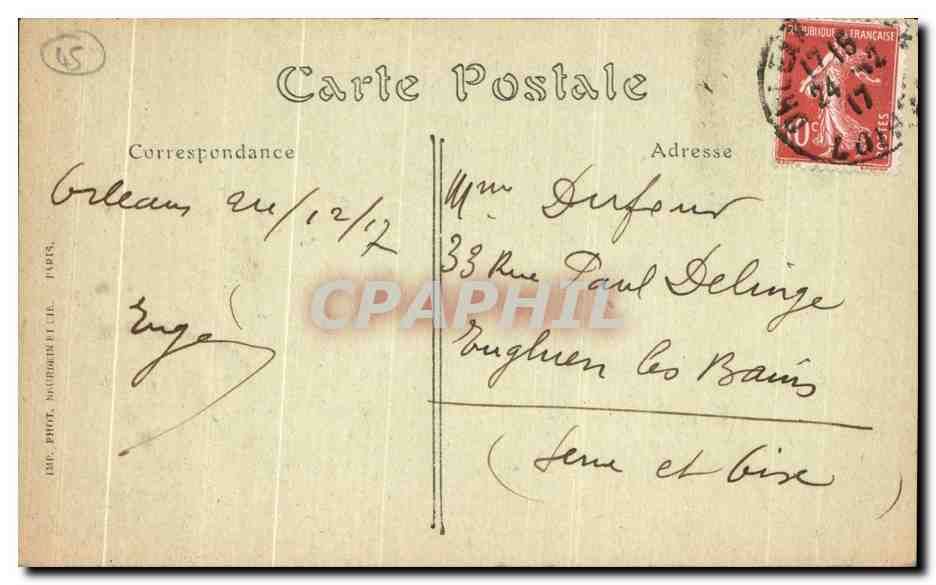 45
Carte Postale
RÉPUBLIQUE FRANÇAISE
10c POSTES
24 12
17
Correspondance
Adresse
Orleans 24/12/17
Mme Dufour
33 Rue Paul Delinge
Enghien les Bains
(Seine et Oise)
CPAPHIL
IMP. PHOT. NEURDEIN ET CIE. PARIS.